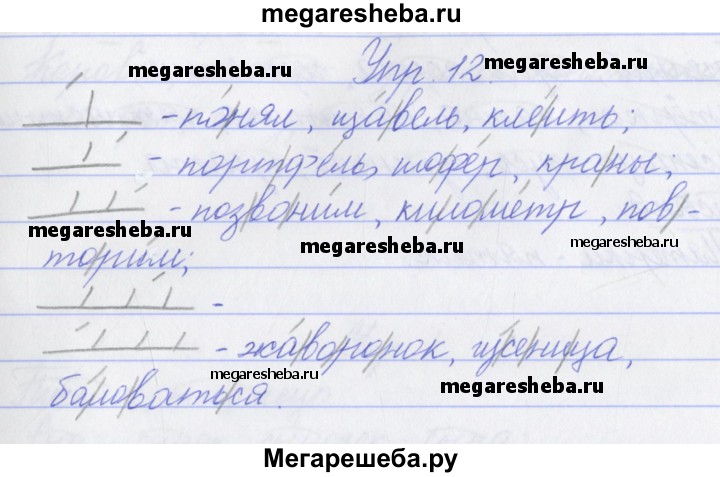 megaresheba.ru
Упр. 12.
megaresheba.ru megaresheba.ru
- по́нял, ща́вель, кле́ить;
- портфе́ль, шофёр, краны́;
- позвони́м, киломе́тр, пов-
megaresheba.ru megaresheba.ru megaresheba.ru
тори́м;
-
- жа́воронок, гу́сеница,
megaresheba.ru megaresheba.ru
ба́ловаться.
Мегарешеба.ру